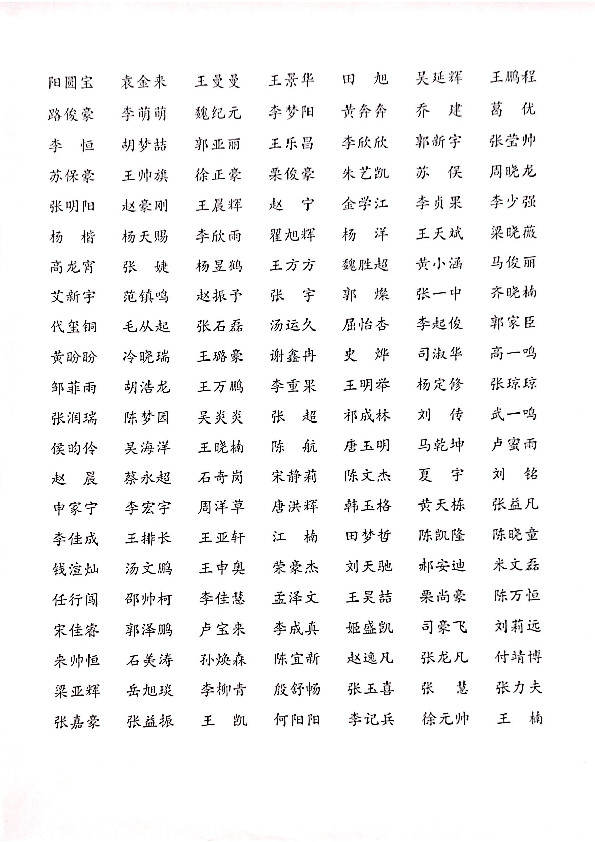 阳圆宝 袁金来 王曼曼 王景华 田旭 吴延辉 王鹏程
路俊豪 李萌萌 魏纪元 李梦阳 黄奔奔 乔建 葛优
李恒 胡梦喆 郭亚丽 王乐昌 李欣欣 郭新宇 张莹帅
苏保豪 王帅旗 徐正豪 栗俊豪 朱艺凯 苏俣 周晓龙
张明阳 赵豪刚 王晨辉 赵宁 金学江 李贞果 李少强
杨楷 杨天赐 李欣雨 瞿旭辉 杨洋 王天斌 梁晓薇
高龙宵 张婕 杨昱鹤 王方方 魏胜超 黄小涵 马俊丽
艾新宇 范镇鸣 赵振予 张宇 郭燦 张一中 齐晓楠
代玺铜 毛从起 张石磊 汤运久 屈怡杏 李起俊 郭家臣
黄盼盼 冷晓瑞 王璐豪 谢鑫冉 史烨 司淑华 高一鸣
邹菲雨 胡浩龙 王万鹏 李重果 王明举 杨定修 张琼琼
张润瑞 陈梦园 吴炎炎 张超 祁成林 刘传 武一鸣
侯昀伶 吴海洋 王晓楠 陈航 唐玉明 马乾坤 卢蜜雨
赵晨 蔡永超 石奇岗 宋静莉 陈文杰 夏宇 刘铭
申家宁 李宏宇 周洋草 唐洪辉 韩玉格 黄天栋 张益凡
李佳成 王排长 王亚轩 江楠 田梦哲 陈凯隆 陈晓童
钱渲灿 汤文鹏 王申奥 荣豪杰 刘天驰 郝安迪 米文磊
任行闯 邵帅柯 李佳慧 孟泽文 王吴喆 栗尚豪 陈万恒
宋佳睿 郭泽鹏 卢宝来 李成真 姬盛凯 司豪飞 刘莉远
来帅恒 石美涛 孙焕森 陈宜新 赵逸凡 张龙凡 付靖博
梁亚辉 岳旭琰 李柳青 殷舒畅 张玉喜 张慧 张力夫
张嘉豪 张益振 王凯 何阳阳 李记兵 徐元帅 王楠